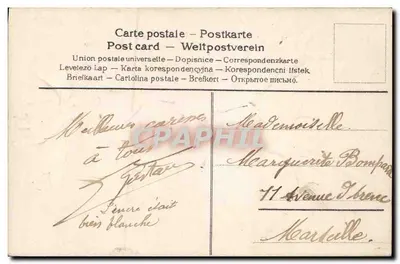 Carte postale - Postkarte
Post card - Weltpostverein
Union postale universelle - Dopisnice - Correspondenzkarte
Levelező Lap - Karta korespondencyjna - Korespondenčni listek
Briefkaart - Cartolina postale - Brefkort - Открытое письмо.
Meilleures caresses
à tous
Gustave
L'encre était
bien blanche
CPAPHIL
Mademoiselle
Marguerite Bompard
11 Avenue
Marseille.